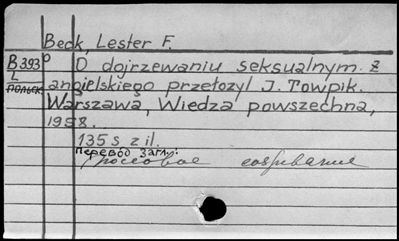 Beck, Lester F.
B393 O dojrzewaniu seksualnym. Z
L angielskiego przełożył J. Towpik.
польск Warszawa, Wiedza powszechna,
1958.
135 s. z il.
Перевод загл.:
Половое созревание